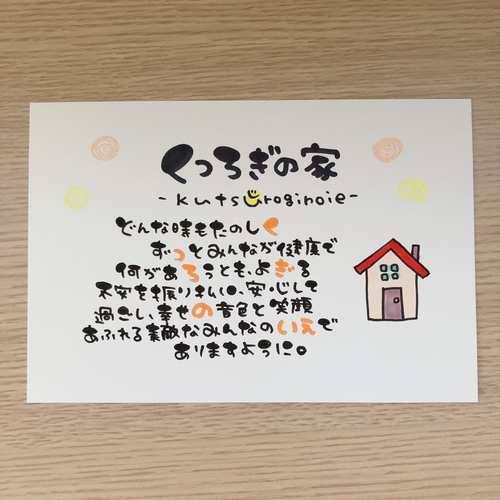 くつろぎの家
-kutsuroginoie-
どんな時もたのしく
ずっとみんなが健康で
何があろうとも、よぎる
不安を振り払い、安心して
過ごし、幸せの音色と笑顔
あふれる素敵なみんなのいえで
ありますように。